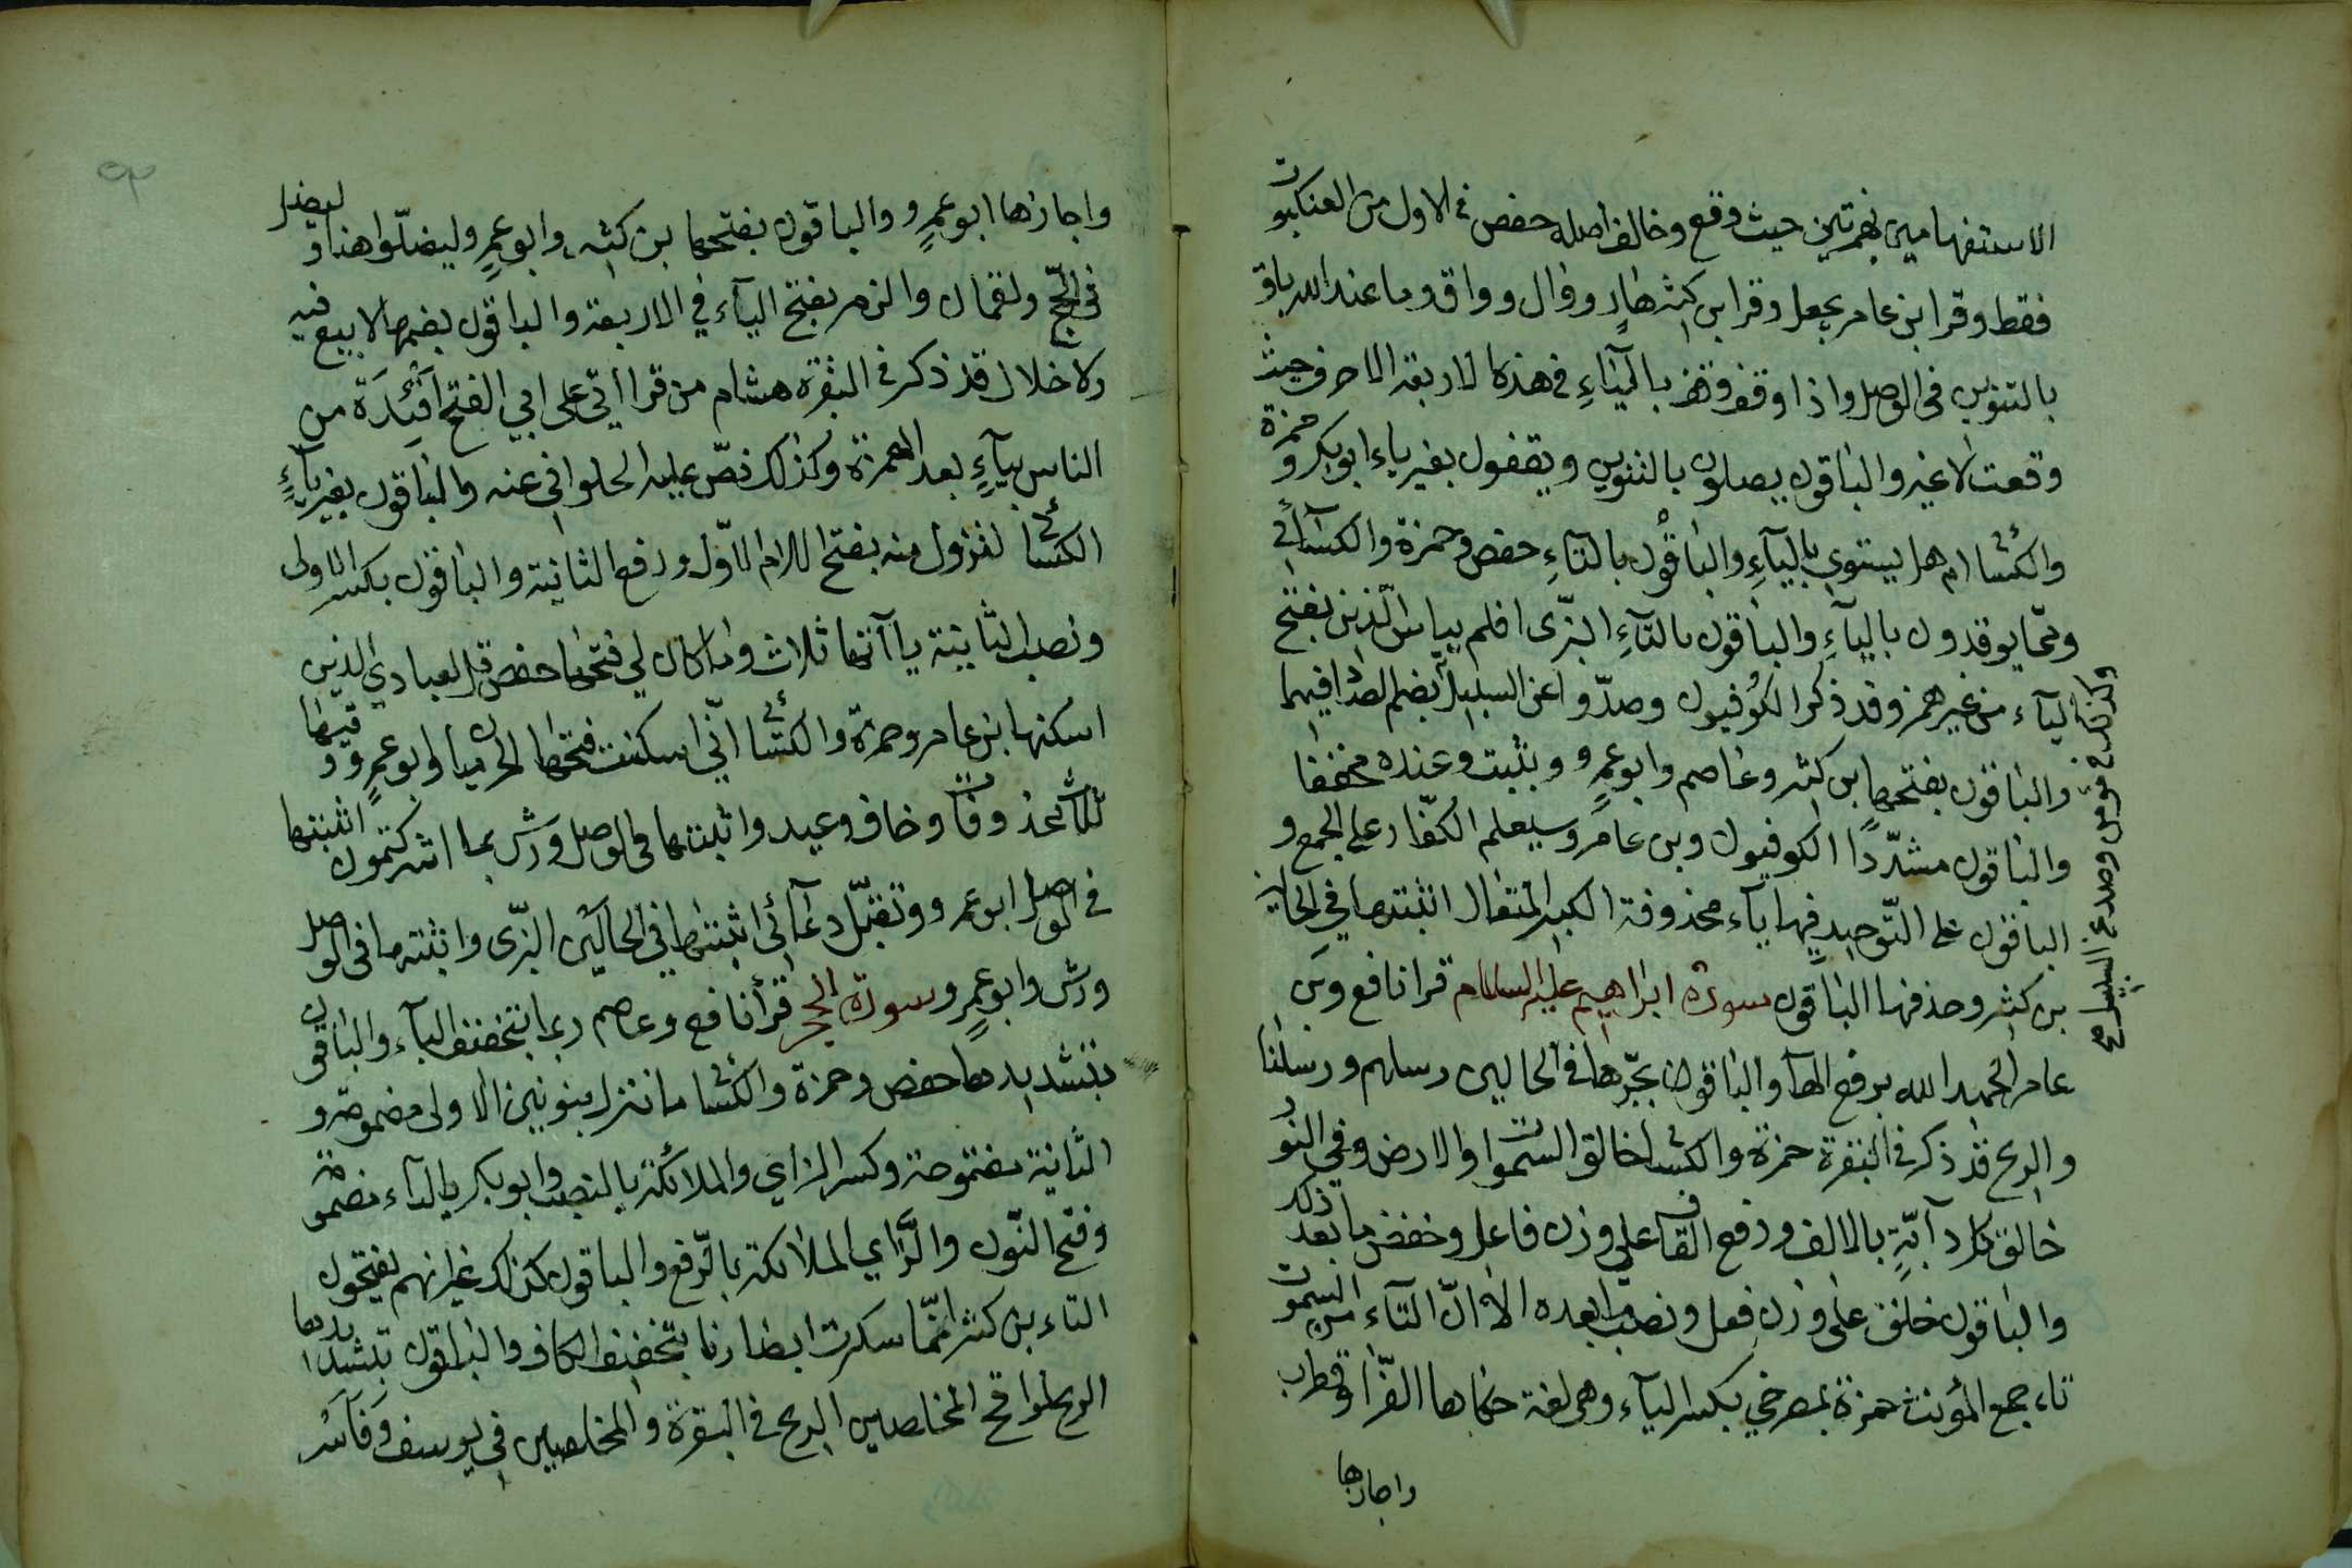 الاستفهامين بهمزتين حيث وقع وخالف اصله حفص في الاول من العنكبوت
فقط وقرا بن عامر بجعل وقرا بن كثير هادٍ ووال وواق وما عند الله باق
بالتنوين في الوصل واذا وقف وقف بالياءِ في هذه الاربعة الاحرف حيث
وقعت لا غير والباقون يصلون بالتنوين ويقفون بغير ياء ابو بكر وحمزة
والكسائي ام هل يستوي بالياءِ والباقون بالتاءِ حفص وحمزة والكسآئي
ومما يوقدون بالياءِ والباقون بالتآءِ البزّى افلم يياس الّذين بفتح
اليآء من غير همز وقد ذكر الكوفيون وصدّوا عن السبيل بضم الصاد فيهما
والباقون بفتحهما بن كثير وعاصم وابو عمرٍو ويثبت وعنده مخففا
والباقون مشدّدًا الكوفيون وبن عامر وسيعلم الكفّار على الجمع و
الباقون على التّوحيد فيها يآء محذوفة الكبير المتعال اثبتها في الحالين
بن كثير وحذفها الباقون سورة ابراهيم عليه السلام قرا نافع وبن
عامر الحميد الله برفع الهآ والباقون بجرّها في الحالين رسلهم ورسلنا
والريح قد ذكر في البقرة حمزة والكسائي خالق السموات والارض وفي النور
خالق كل دآبّةٍ بالالف ورفع القاف على وزن فاعل وخفض ما بعد ذلك
والباقون خلق على وزن فعل ونصب ما بعده الا انّ التآء من السموات
تاء جمع المؤنث حمزة بمصرخي بكسر اليآء وهي لغة حكاها الفرّا وقطرب
واجازها
وكذلك في وصد عن السبيل
واجازها ابو عمرٍو والباقون بفتحها بن كثير وابو عمرٍو ليضلّوا هنا وليضل
في الحجّ ولقمان والزمر بفتح اليآء في الاربعة والباقون بضمها لا بيع فيه
ولا خلال قد ذكر في البقرة هشام من قراأتي على ابي الفتح افئيدَة من
الناس بيآءٍ بعد الهمزة وكذلك نصّ عليه الحلواني عنه والباقون بغير يآءٍ
الكسائي لتزول منه بفتح اللام الاوّل ورفع الثانية والباقون بكسر الاولى
ونصب الثانية ياآتها ثلاث وما كان لي فتحها حفص قل لعبادي الذين
اسكنها بن عامر وحمزة والكسائي انّي اسكنت فتحها الحرميان وابو عمرٍو وفيها
ثلاث محذوفات وخاف وعيد واثبتها في الوصل ورش بما اشركتمون اثبتها
في الوصل ابو عمرو وتقبّل دعآئي اثبتها في الحالين البزّى واثبتها في الوصل
ورش وابو عمرٍو سورة الحجر قرأ نافع وعاصم ربما بتخفيف البآء والباقون
بتشديدها حفص وحمزة والكسائي ما ننزل بنونين الاولى مضمومة و
الثانية مفتوحة وكسر الزاي والملائكة بالنصب وابو بكر بالتآء مضمومة
وفتح النّون والزّاي الملائكة بالرّفع والباقون كذلك غير انهم يفتحون
التاء بن كثير انّما سكرت ابصارنا بتخفيف الكاف والباقون بتشديدها
الريح لواقح المخلصين الريح في البقرة والمخلصين في يوسف وفآسر